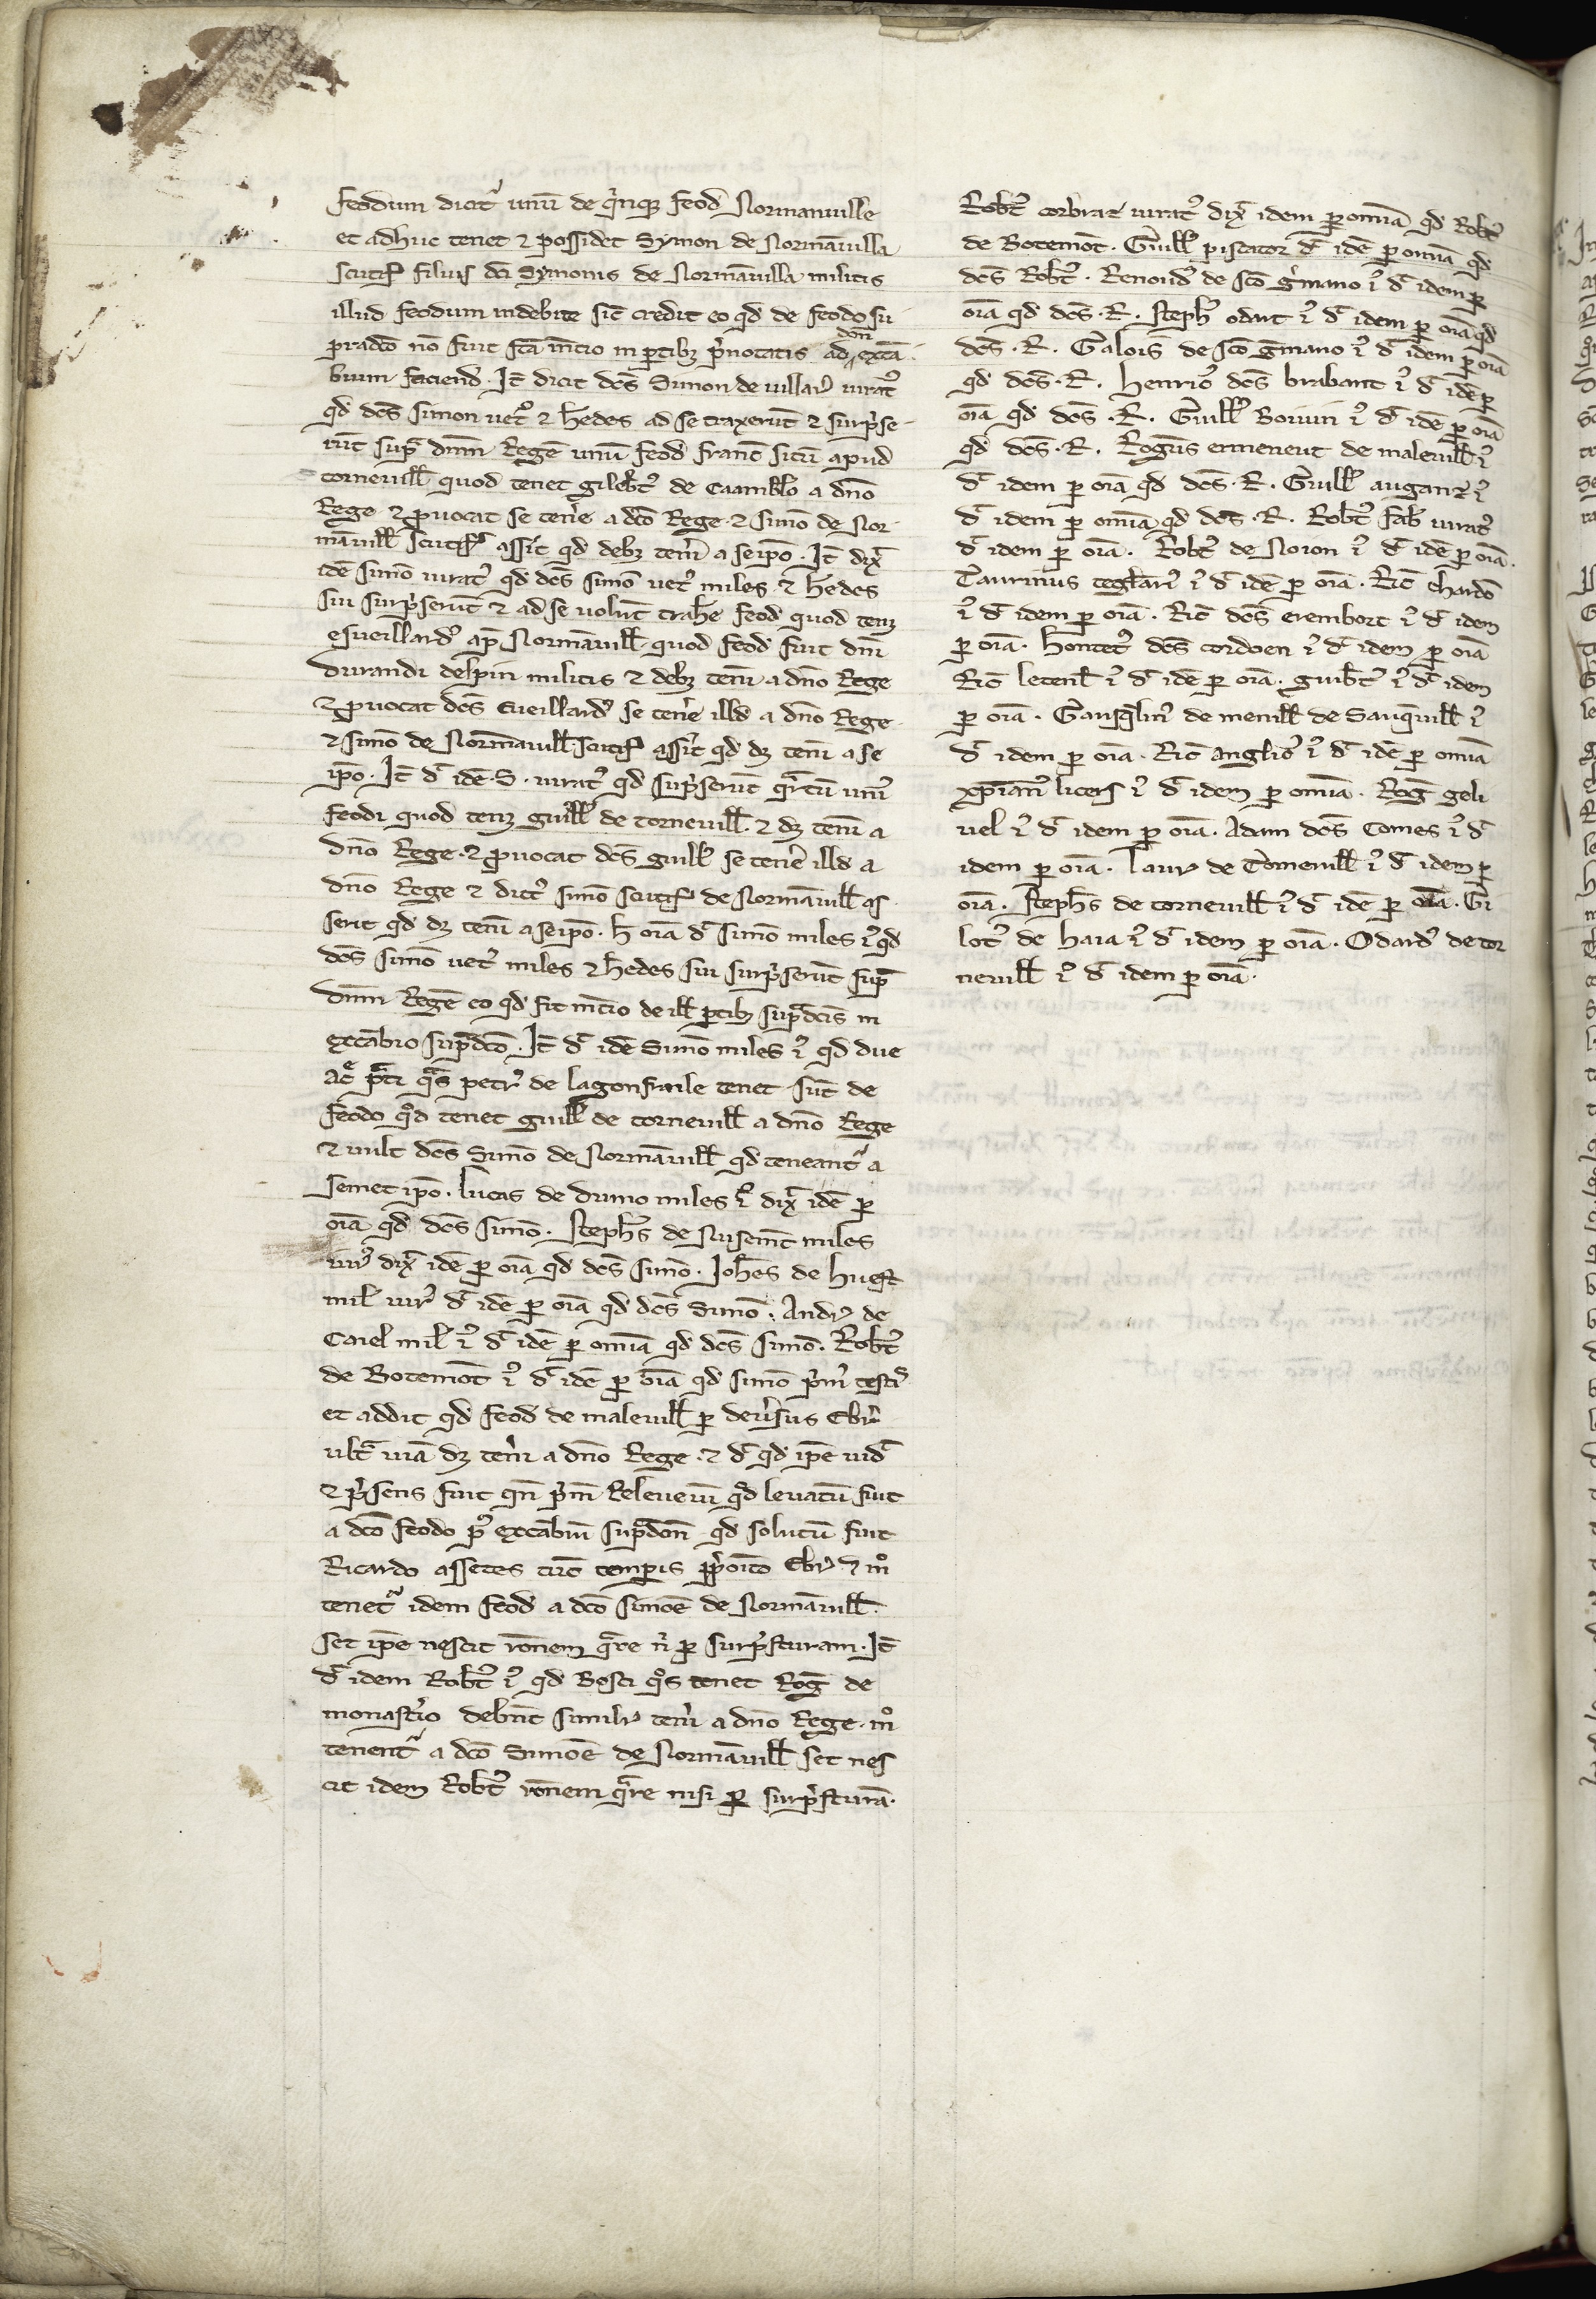 feodum dicit᷑ unū de q̇nq; feod̛ Normanuille
et adhuc tenet ⁊ possidet Symon de Normānuilla
scutif̛ filius dc̄i Symonis de Normānuilla militis
illud feodum indebite sic̄ credit eo qd̛ de feodo su
pradc̄o nō fuit fc̄a m̄tio in ꝑtibȝ ṗnotatis ad dc̄m excā
bium faciend̛. It̄ dicit dc̄s Simon de uillar̛ iurat᷑
qd̛ dc̄s simon uet᷑ ⁊ h̄edes ad se traxerūt ⁊ surṗse
rūt sup̄ dnm̄ Regē unū feod̛ franc̄ sitū apud
torneuill̄ quod tenet gileb̛t᷑ de Caambl̛o a dn̄o
Rege ⁊ ꝓuocat se ten̄e a dc̄o Rege ⁊ simō de Nor
mānuill̄ scutif̛ assit̄ qd̛ debȝ ten̄i a seip̄o. It̄ dix̄
idē simō iurat᷑ qd̛ dc̄s simō uet᷑ miles ⁊ h̄edes
sui surṗserūt ⁊ ad se uolūt trah̄e feod̛ quod tenȝ
esueillard᷑ ap̄ Normānuill̄ quod feod̛ fuit dn̄i
durandi despin militis ⁊ debȝ ten̄i a dn̄o Rege
⁊ ꝓuocat dc̄s Eueillard᷑ se ten̄e illd̛ a dn̄o Rege
⁊ simō de Normānuill̄ scutif̛ assit̄ qd̛ dȝ ten̄i a se
ip̄o. It̄ d̄ idē .S. iurat᷑ qd̛ surṗserūt q̄rtū uni᷑
feodi quod tenȝ guill̛ de torneuill̄. ⁊ dȝ ten̄i a
dn̄o Rege. ⁊ ꝓuocat dc̄s guill̛ se ten̄e illd̛ a
dn̄o Rege ⁊ dict᷑ simō scutif̛ de Normānuill̄ as
serit qd̛ dȝ ten̄i a seip̄o. h̄ oīa d̄ simō miles i᷑ qd̛
dc̄s simō uet᷑ miles ⁊ h̄edes sui surṗserūt sup̄
dnm̄ Regē eo qd̛ fit m̄tio de ill̄ ꝑtibȝ sup̄dc̄is in
excābio sup̄dc̄o. It̄ d̄ idē Simō miles i᷑ qd̛ due
ac̄ p̄ti q̄s petr᷑ de lagonfraile tenet sūt de
feodo qͦd tenet guill̛ de torneuill̄ a dn̄o Rege
⁊ uult dc̄s Simō de Normānuill̄ qd̛ teneant᷑ a
semet ip̄o. lucas de dumo miles i᷑ dix̄ idē ꝑ
oīa qd̛ dc̄s simō. Steph̄s de Nusemēt miles
iur̛ dix̄ idē ꝑ oīa qd̛ dc̄s simō. Joh̄es de huest
mil̛ iur̛ d̄ idē ꝑ oīa qd̛ dc̄s Simō. Andr̛ de
Caiel mil̛ i᷑ d̄ idē ꝑ omīa qd̛ dc̄s simō. Rob̛t᷑
de Botemōt i᷑ d̄ idē ꝑ oīa qd̛ simō ṗm᷑ testi᷑
et addit qd̛ feod̛ de maleuill̄ ꝑ deu̇sus Ebr̛
ult̄ uiā dȝ ten̄i a dn̄o Rege. ⁊ d̄ qd̛ ip̄e uid̄
⁊ p̄sens fuit qn̄ ṗm̄ Releueiū qd̛ leuatū fuit
a dc̄o feodo p᷑ excābiū sup̄dc̄m qd̛ solutū fuit
Ricardo assetes tūc temꝑis p̄pōito Ebr̛ ⁊ mͦ
tenet᷑ idem feod̛ a dc̄o simōe de Normānuill̄.
set ip̄e nescit rōnem q̄re n̄ ꝑ surṗsturam. It̄
d̄ idem Rob̛t᷑ i᷑ qd̛ Bosci qͦs tenet Rog̛ de
monast̄io debn̄t simil̛r ten̄i a dn̄o Rege. mͦ
tenent᷑ a dc̄o Simōe de Normānuill̄ set nes
cit idem Rob̛t᷑ rōnem q̄re nisi ꝑ surṗsturā.
Rob̛t᷑ corbrae iurat᷑ dix̄ idem ꝑ omīa qd̛ Rob̛t᷑
de Botemōt. Guill̛ piscator d̄ idē ꝑ omīa qd̛
dc̄s Rob̛t᷑. Renoud᷑ de sc̄o g̓mano i᷑ d̄ idem ꝑ
oīa qd̛ dc̄s .R. Steph᷑ odart i᷑ d̄ idem ꝑ oīa qd̛
dc̄s .R. Galois de sc̄o g̓mano i᷑ d̄ idem ꝑ oīa
qd̛ dc̄s .R. henric᷑ dc̄s brabant i᷑ d̄ idē ꝑ
oīa qd̛ dc̄s .R. Guill̛ Boiuin i᷑ d̄ idē ꝑ oīa
qd̛ dc̄s .R. Rog̛us ermeneut de maleuill̄ i᷑
d̄ idem ꝑ oīa qd̛ dc̄s .R. Guill̛ augant᷑ i᷑
d̄ idem ꝑ omīa qd̛ dc̄s .R. Rob̛t᷑ fab̛ iurat᷑
d̄ idem ꝑ oīa. Rob̛t᷑ de Noion i᷑ d̄ idē ꝑ oīa.
Taurinus tegl̛ari᷑ i᷑ d̄ idē ꝑ oīa. Ric̄ chardō
i᷑ d̄ idem ꝑ oīa. Ric̄ dc̄s erembort i᷑ d̄ idem
ꝑ oīa. hontet᷑ dc̄s cordoen i᷑ d̄ idem ꝑ oīa
Ric̄ letenl̛ i᷑ d̄ idē ꝑ oīa. guib̛t᷑ i᷑ d̄ idem
ꝑ oīa. Gausq̄lin᷑ de menill̄ de Sauq̄uill̄ i᷑
d̄ idem ꝑ oīa. Ric̄ anglic᷑ i᷑ d̄ idē ꝑ omīa
xp̄ian᷑ licers i᷑ d̄ idem ꝑ omīa. Rog̛ geli
uel i᷑ d̄ idem ꝑ oīa. Adam dc̄s Comes i᷑ d̄
idem ꝑ oīa. laur̛ de Torneuill̄ i᷑ d̄ idem ꝑ
oīa. Steph̄s de torneuill̄ i᷑ d̄ idē ꝑ oīa. Gi
lot᷑ de haia i᷑ d̄ idem ꝑ oīa. Odard᷑ de tor
neuill̄ i᷑ d̄ idem ꝑ oīa.